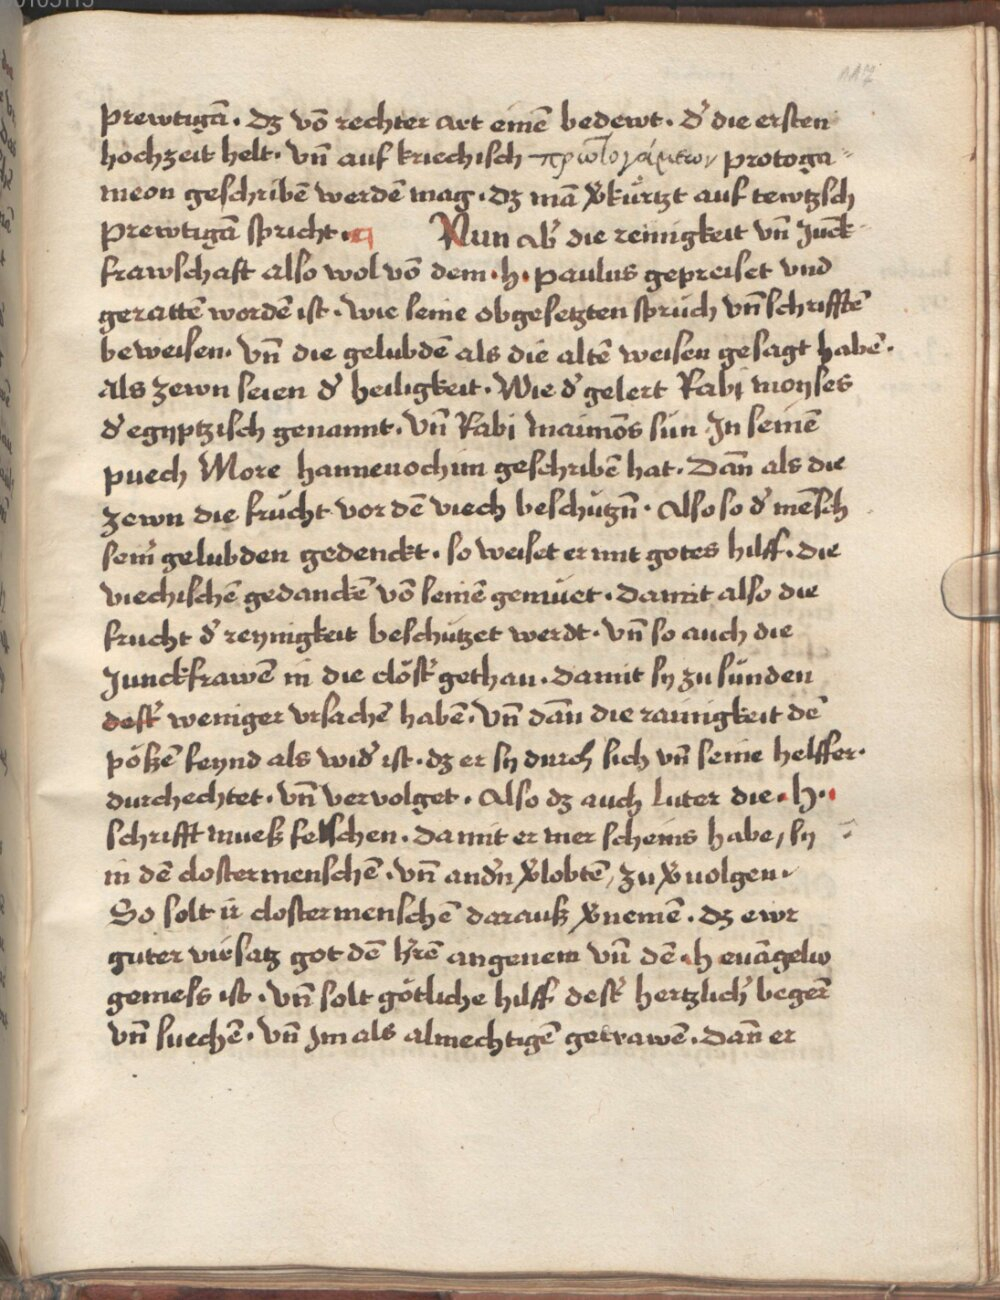 117
prewtigā · dz vō rechter art einē bedewt · d' die ersten
hochzeit helt · vn̄ auf kriechisch πρωτογάμεων protoga⸗
meon geschribē werdē mag · dz mā v'kürtzt auf tewtzsch
prewtigā spricht · Nun ab' die reinigkeit vn̄ Juck̄⸗
frawschaft also wol vō dem · h · paulus gepreiset vnd
gerattē wordē ist · wie seine obgesetzten sprüch vn̄ schrifftē
beweisen · vn̄ die gelubdē als die altē weisen gesagt habē ·
als zewn seien d' heiligkeit · Wie d' gelert Rabj moyses
d' egyptzisch genannt · vn̄ Rabj maimōs sün In seinē
puech More hannevochim geschribē hat · Dān als die
zewn die frücht vor dē viech beschützn̄ · Also so d' mēsch
sein̄ gelubden gedenckt · so weiset er mit gotes hilff · die
viechischē gedanckē vō seinē gemüet · damit also die
frucht d' reynigkeit beschützet werdt · vn̄ so auch die
Junckfrawē in die clöst' gethan · damit sy zu sünden
dest' weniger vrsachē habē · vn̄ dān die rainigkeit dē
pößē feynd als wid' ist · dz er sy durch sich vn̄ seine helffer ·
durchechtet · vn̄ vervolget · Also dz auch luter die · h ·
schrifft mueß felschen · damit er mer scheins habe / sy
in dē clostermenschē · vn̄ and'n v'lobtē / zu v'uolgen ·
So solt ir clostermenschē darauß v'nemē · dz ewr
guter vürsatz got dē h'rē angenem vn̄ dē · h euāgelio
gemess ist · vn̄ solt götliche hilff dest' hertzlich' begerē
vn̄ suechē · vn̄ Im als almechtigē getrawē · Dān er